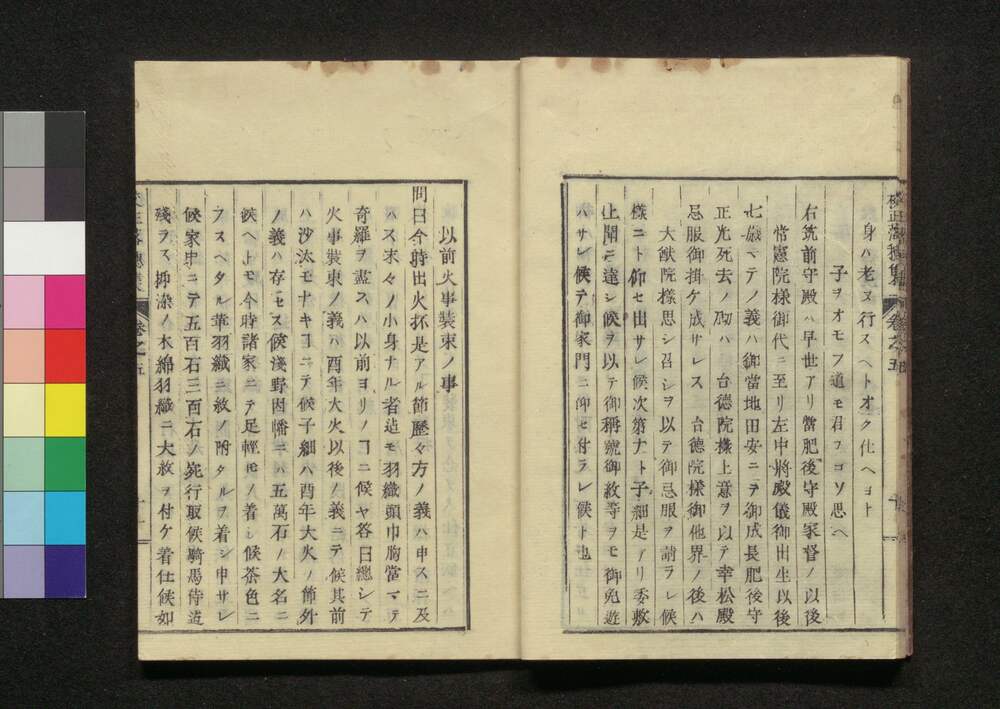 校正落穂集 巻之五
身ハ老ヌ行スヘトオク仕ヘヨト
子ヲオモフ道モ君ヲコソ思ヘ
右筑前守殿ハ早世アリ當肥後守殿家督ノ以後
常憲院様御代ニ至リ左中將殿儀御出生以後
七歳マテノ義ハ御當地田安ニテ御成長肥後守
正光死去ノ砌ハ台德院様上意ヲ以テ幸松殿
忌服御掛ケ成サレス台德院様御他界ノ後ハ
大猷院様思シ召シヲ以テ御忌服ヲ請ラレ候
様ニト仰セ出サレ候次第ナト子細是アリ委敷
上聞ニ達シ候ヲ以テ御稱號御紋等ヲモ御免遊
ハサレ候テ御家門ニ仰セ付ラレ候ト也
以前火事裝束ノ事
問曰今時出火抔是アル節歷々方ノ義ハ申スニ及
ハス末々ノ小身ナル者迠モ羽織頭巾胸當マテ
奇羅ヲ盡スハ以前ヨリノコニ候ヤ答曰總シテ
火事裝束ノ義ハ酉年大火以後ノ義ニテ候其前
ハ沙汰モナキコニテ候子細ハ酉年大火ノ節外
ノ義ハ存セス候淺野因幡ニハ五萬石ノ大名ニ
候ヘトモ今時諸家ニテ足輕モノ着シ候茶色ニ
フスヘタル革羽織ニ紋ノ附タルヲ着シ申サレ
候家中ニテ五百石三百石ノ宛行取候騎馬侍迠
殘ラス柳染ノ木綿羽織ニ大紋ヲ付ケ着仕候如